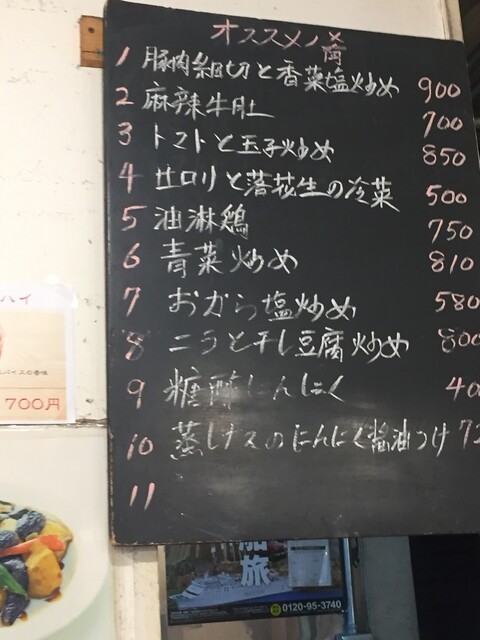 オススメ
1 豚肉細切と香菜塩炒め 900
2 麻辣牛肚 700
3 トマトと玉子炒め 850
4 セロリと落花生の冷菜 500
5 油淋鶏 750
6 青菜炒め 810
7 おから塩炒め 580
8 ニラと干し豆腐炒め 800
9 糖酢にんにく 40
10 蒸しナスのにんにく醤油つけ 7
11
ハイ
パイスの香味
700円
船旅
0120-95-3740